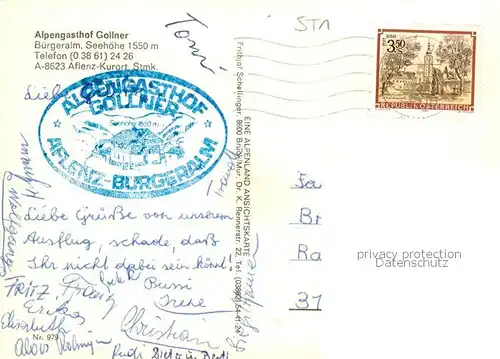 Alpengasthof Gollner
Bürgeralm, Seehöhe 1550 m
Telefon (0 38 61) 24 26
A-8623 Aflenz-Kurort, Stmk.
Toni
STA
3.50
REPUBLIK ÖSTERREICH
Liebe
ALPENGASTHOF
GOLLNER
Seehöhe 1550 m
AFLENZ-BÜRGERALM
Liebe Grüße von unserem
Ausflug, schade, daß
Ihr nicht dabei sein könnt!
Bussi
Irene
FRITZ
Franz
Erika
Elisabeth
Christian
Alois
Rudi
Wolfgang
Nr. 979
EINE ALPENLAND ANSICHTSKARTE
Fritjhof Schellinger, 8600 Bruck/Mur, Dr. K. Rennerstr. 22, Tel.
Fa
Br
Ra
31
privacy protection
Datenschutz